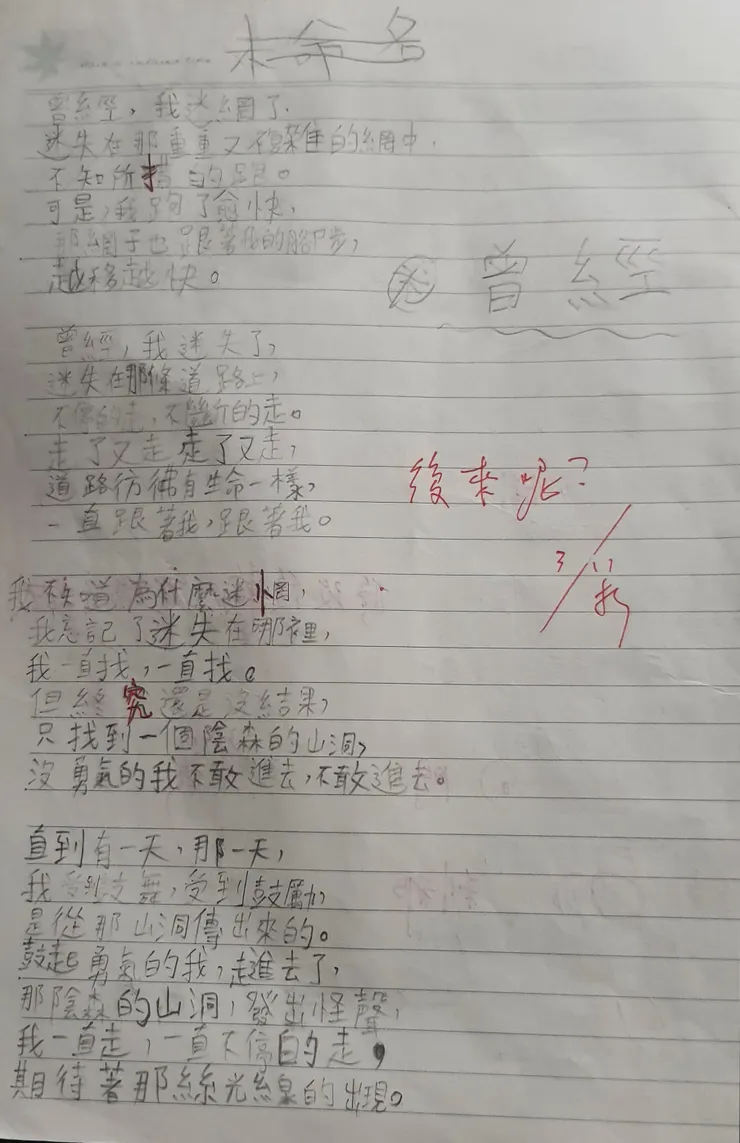 未命名
曾經，我迷網了.
迷失在那重重又複雜的網中.
不知所措的跑。
可是，我跑了愈快，
那網子也跟著我的腳步，
越移越快。
曾經
曾經，我迷失了，
迷失在那條道路上，
不停的走，不斷的走。
走了又走走了又走，
道路彷彿有生命一樣，
一直跟著我，跟著我。
後來呢？
3/11
我不知道為什麼迷惘，
我忘記了迷失在哪裡，
我一直找，一直找。
但終究還是沒結果，
只找到一個陰森的山洞，
沒勇氣的我不敢進去，不敢進去。
直到有一天，那一天，
我受到支舞，受到鼓勵，
是從那山洞傳出來的。
鼓起勇氣的我，走進去了，
那陰森的山洞，發出怪聲，
我一直走，一直不停的走，
期待著那絲光線的出現。